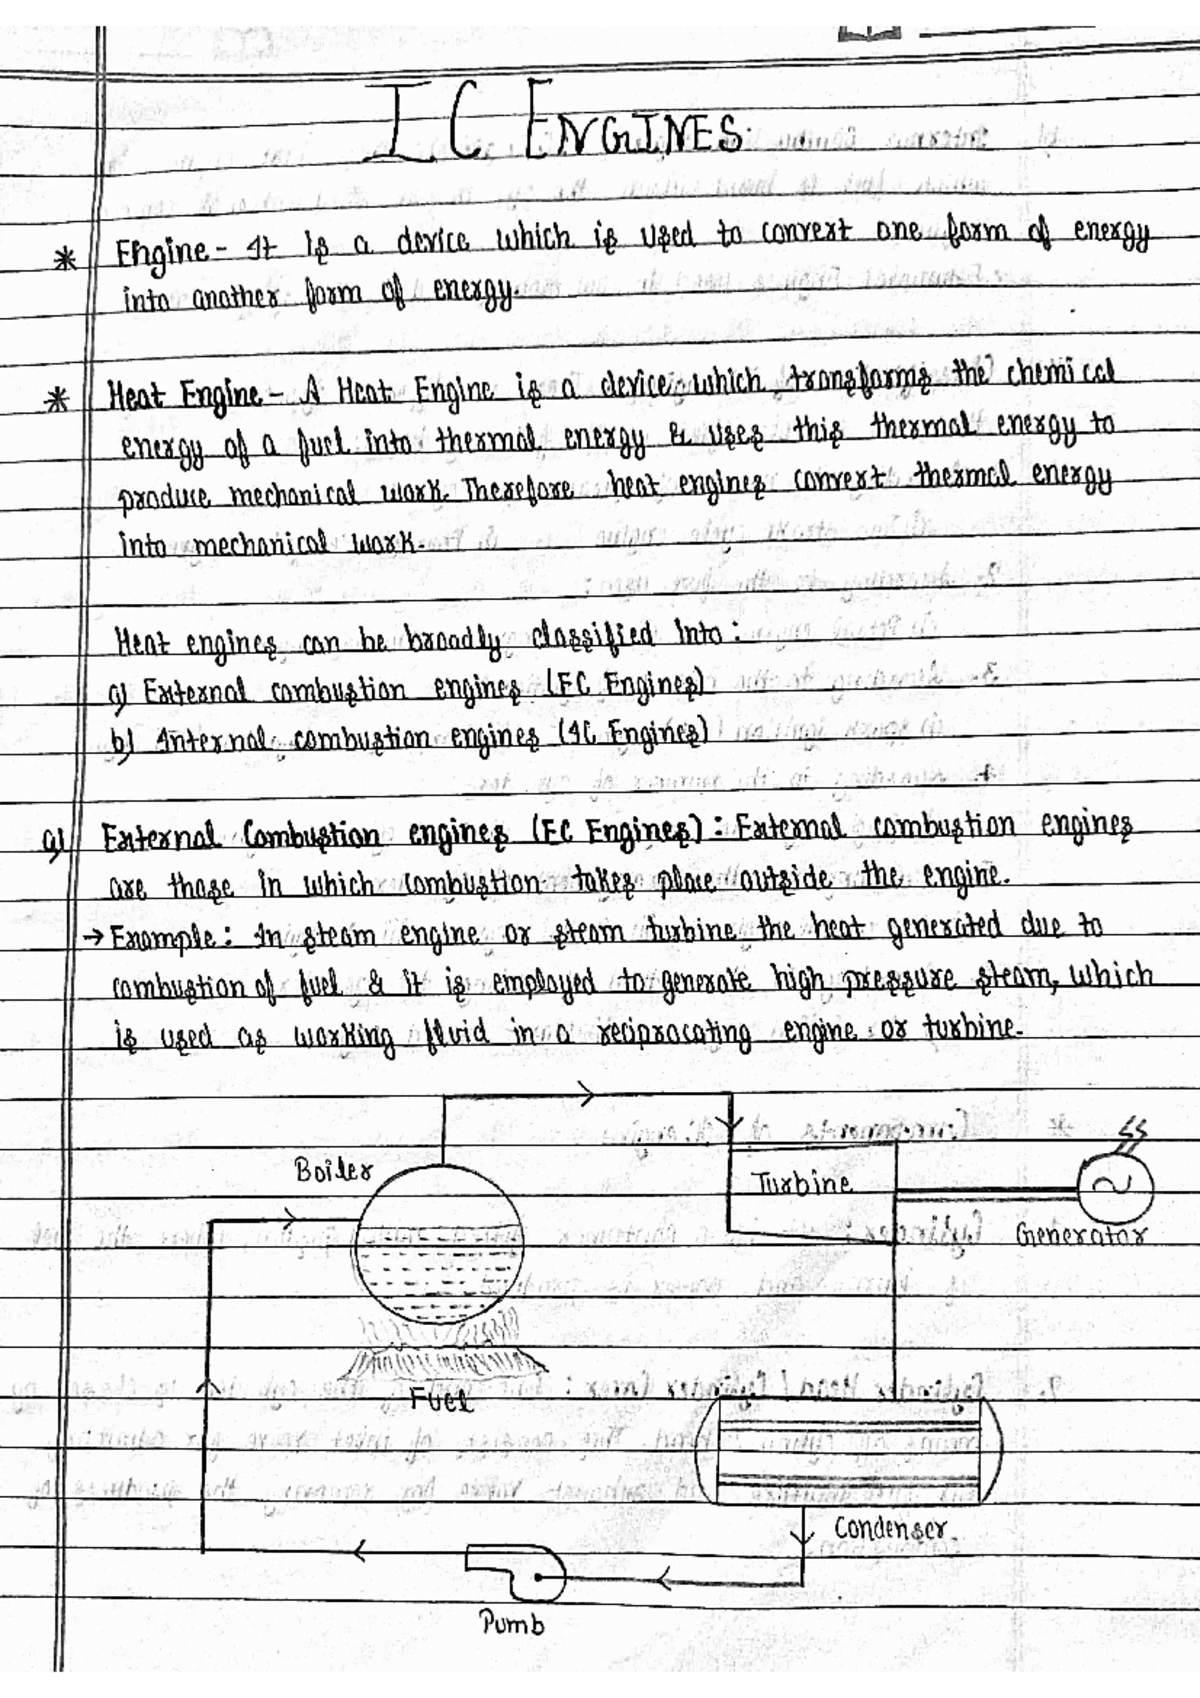 IC ENGINES
* Engine - It is a device which is used to convert one form of energy
into another form of energy.
* Heat Engine - A Heat Engine is a device which transforms the chemical
energy of a fuel into thermal energy & uses this thermal energy to
produce mechanical work. Therefore heat engines convert thermal energy
into mechanical work.
Heat engines can be broadly classified into :
a) External combustion engines (EC Engines)
b) Internal combustion engines (IC Engines)
a) External Combustion engines (EC Engines) : External combustion engines
are those in which combustion takes place outside the engine.
→ Example : In steam engine or steam turbine the heat generated due to
combustion of fuel & it is employed to generate high pressure steam, which
is used as working fluid in a reciprocating engine or turbine.
Boiler
Turbine
Generator
Fuel
Condenser.
Pumb